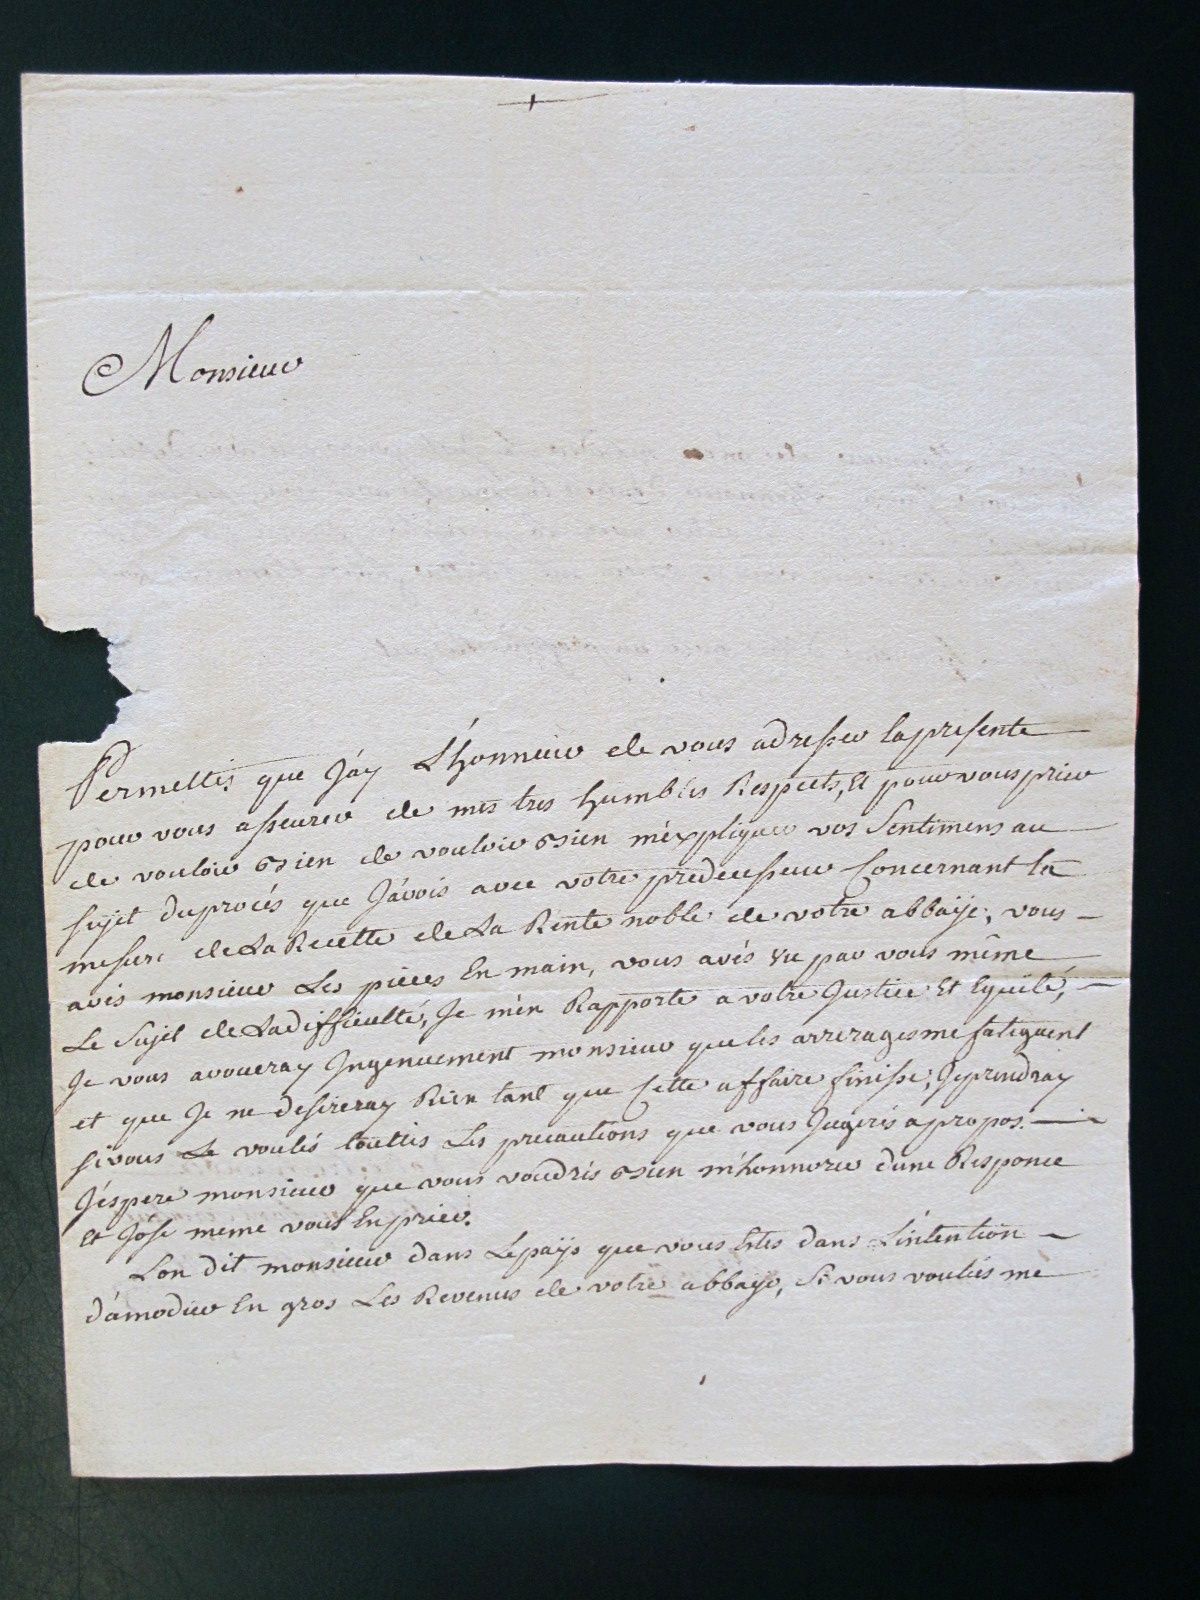 Monsieur
Permettés que J'ay L'honneur de vous adresser la presente
pour vous asseurer de mes tres humbles Respects, Et pour vous prier
de vouloir bien de vouloir bien m'expliquer vos Sentimens au
sujet du procés que J'avois avec votre predecesseur Concernant la
mesure de La Recette de La Rente noble de votre abbaÿe, vous
avés monsieur Les pieces En main, vous avés vu par vous même
Le Sujet de La difficulté, Je m'en Rapporte a votre Justice Et Equité,
Je vous avoueray Ingenuement monsieur que les arrerages me fatiguent
et que Je ne desireray Rien tant que Cette affaire finisse, Je prendray
si vous Le voulés touttes Les precautions que vous Jugerés apropos.
J'espere monsieur que vous voudrés bien m'honnorer d'une Responce
Et J'ose meme vous En prier.
Lon dit monsieur dans Le païs que vous Etes dans L'intention
d'amodier En gros Les Revenus de votre abbaye, Si vous voulies me